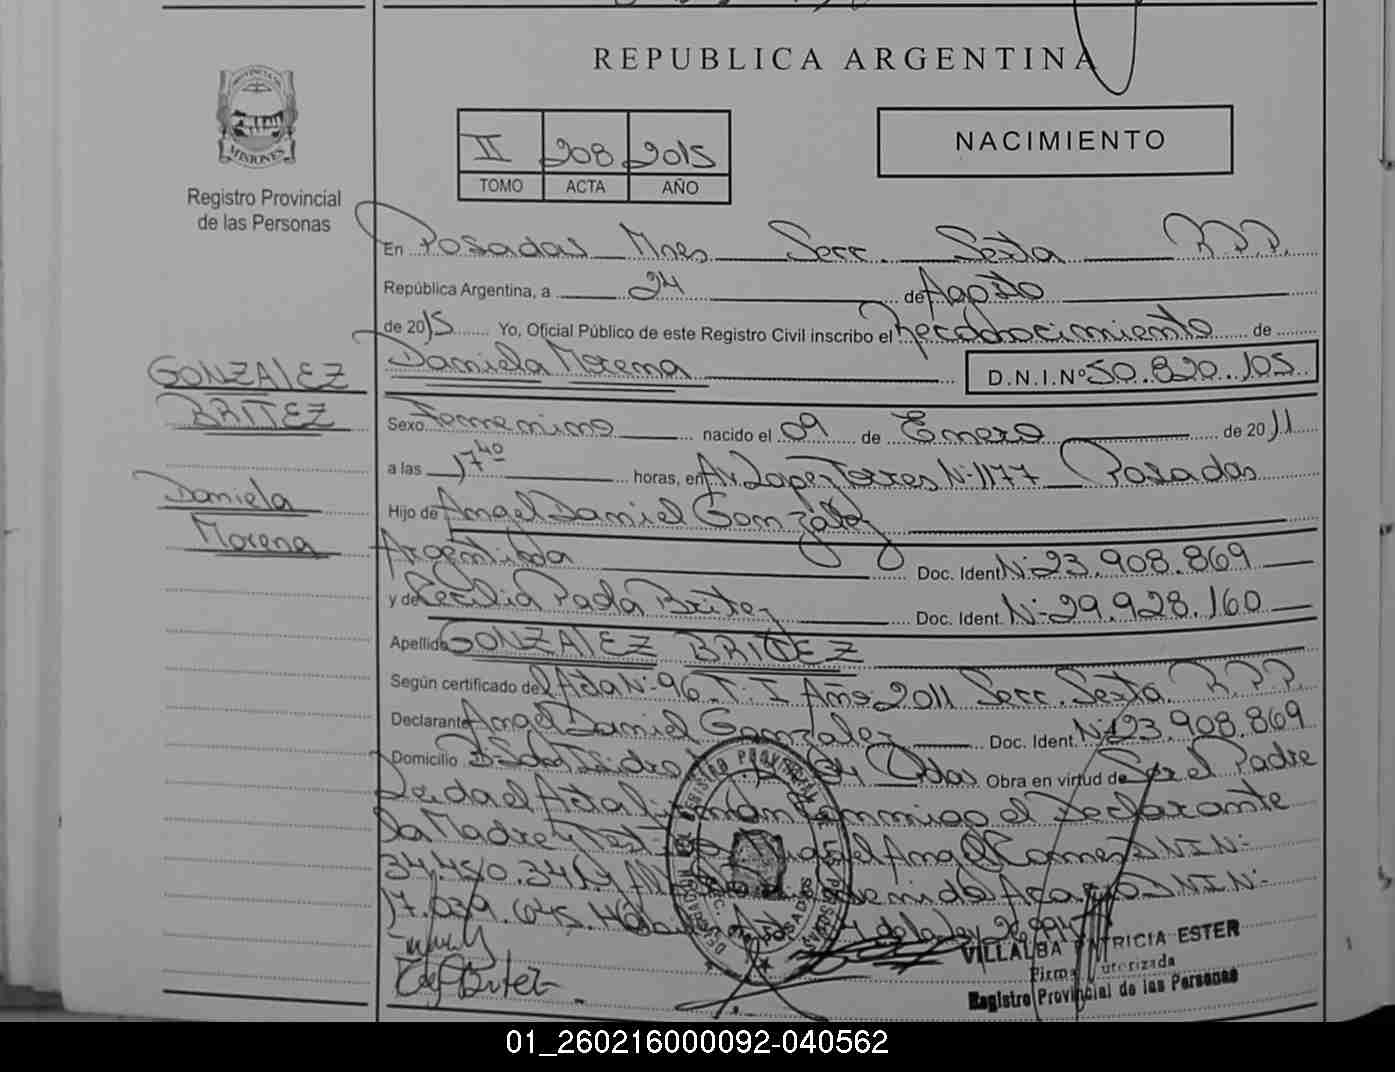 REPUBLICA ARGENTINA
PROVINCIA DE
MISIONES
Registro Provincial
de las Personas
NACIMIENTO
II 208 2015
TOMO ACTA AÑO
En Posadas Mnes Secc. Sexta R.P.P.
República Argentina, a 24 de Agosto
de 2015 Yo, Oficial Público de este Registro Civil inscribo el Reconocimiento de
Daniela Morena D.N.I.Nº 50.820.105
GONZALEZ
BRITEZ
Daniela
Morena
Sexo Femenino nacido el 09 de Enero de 2011
a las 17 40 horas, en Av Lopez Torres Nº 1177 Posadas
Hijo de Angel Daniel González
Argentina Doc. Ident. Nº 23.908.869
y de Cecilia Paola Britez Doc. Ident. Nº 29.928.160
Apellido GONZALEZ BRITEZ
Según certificado del Acta Nº 96 T: I Año: 2011 Secc. Sexta R.P.P.
Declarante Angel Daniel Gonzalez Doc. Ident. Nº 23.908.869
Domicilio Bº San Isidro Pdas Obra en virtud de Ser el Padre
Leida el Acta firman conmigo el Declarante
La Madre y Test. Angel Gomez DNI Nº
34.450.341 y DNI Nº
17.039.645. de la Ley 26.994
VILLALBA PATRICIA ESTER
Firma Autorizada
Registro Provincial de las Personas
01_260216000092-040562